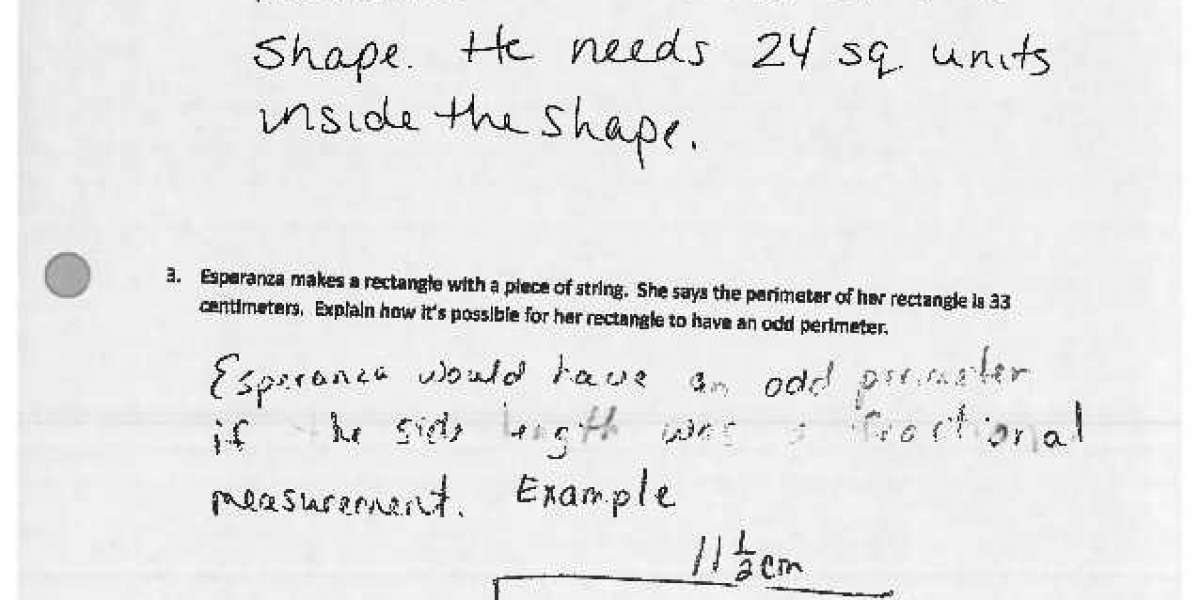 Shape. He needs 24 sq. units
inside the shape.
3. Esperanza makes a rectangle with a piece of string. She says the perimeter of her rectangle is 33
centimeters. Explain how it's possible for her rectangle to have an odd perimeter.
Esperanza would have an odd perimeter
if the side length was a fractional
measurement. Example
11 1/2 cm